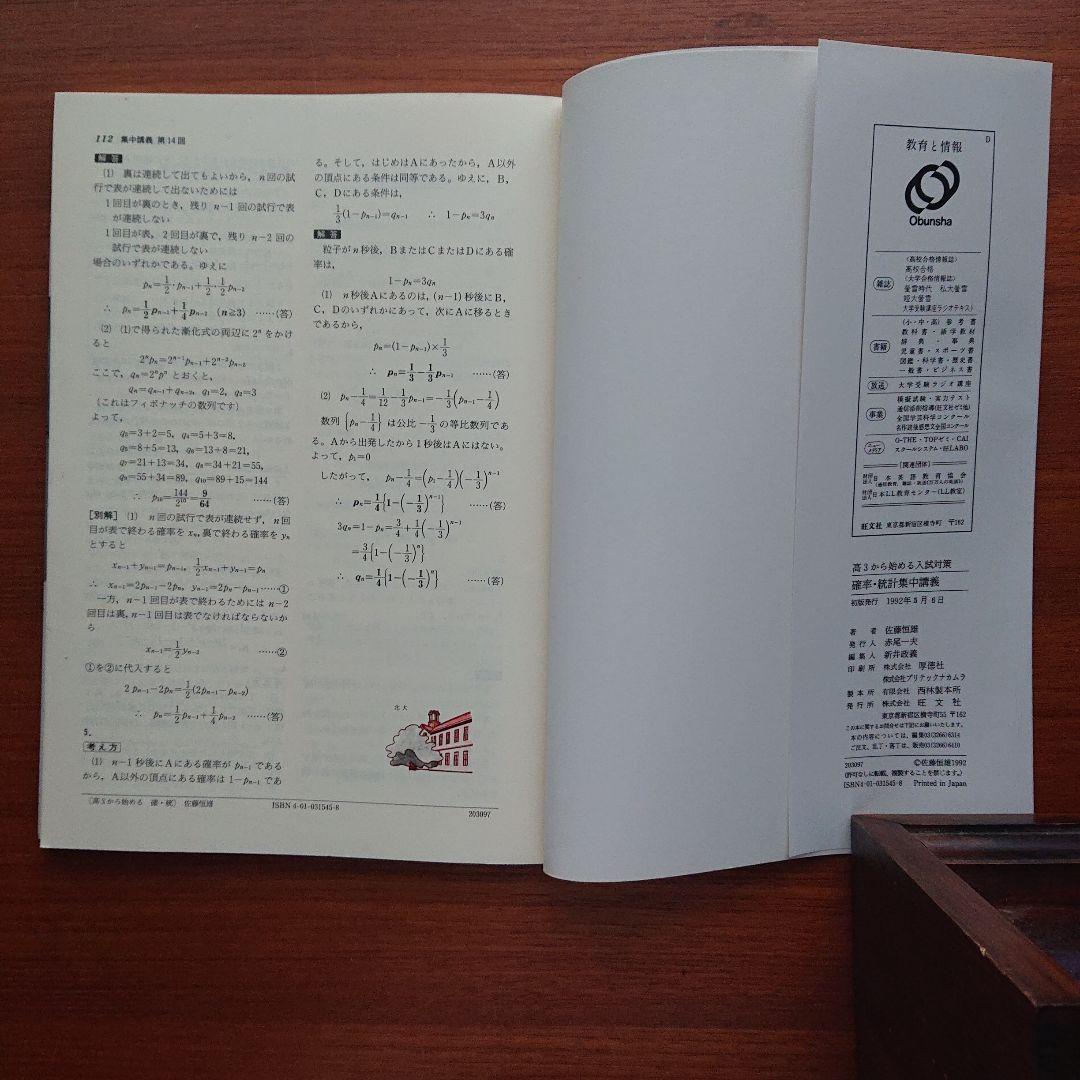 112 集中講義 第14回
解答
(1) 裏は連続して出てもよいから，n回の試
行で表が連続して出ないためには
1回目が裏のとき，残り n−1 回の試行で表
が連続しない
1回目が表，2回目が裏で，残り n−2 回の
試行で表が連続しない
場合のいずれかである。ゆえに
pn=1/2·pn−1+1/2·1/2pn−2
∴ pn=1/2pn−1+1/4pn−2 (n≧3) ……(答)
(2) (1)で得られた漸化式の両辺に 2ⁿ をかけ
ると
2ⁿpn=2ⁿ⁻¹pn−1+2ⁿ⁻²pn−2
ここで，qn=2ⁿpⁿ とおくと，
qn=qn−1+qn−2, q1=2, q2=3
(これはフィボナッチの数列です)
よって，
q3=3+2=5, q4=5+3=8,
q5=8+5=13, q6=13+8=21,
q7=21+13=34, q8=34+21=55,
q9=55+34=89, q10=89+55=144
∴ p10=144/2¹⁰=9/64 ……(答)
[別解] (1) n回の試行で表が連続せず，n回
目が表で終わる確率を xn, 裏で終わる確率を yn
とすると
xn−1+yn−1=pn−1, 1/2xn−1+yn−1=pn
∴ xn−1=2pn−1−2pn, yn−1=2pn−pn−1……①
一方，n−1 回目が表で終わるためには n−2
回目は裏，n−1 回目は表でなければならないか
ら
xn−1=1/2yn−2 ……②
①を②に代入すると
2pn−1−2pn=1/2(2pn−1−pn−2)
∴ pn=1/2pn−1+1/4pn−2 ……(答)
5.
考え方
(1) n−1 秒後にAにある確率が pn−1である
から，A以外の頂点にある確率は 1−pn−1 であ
る。そして，はじめはAにあったから，A以外
の頂点にある条件は同等である。ゆえに，B，
C，Dにある条件は，
1/3(1−pn−1)=qn−1 ∴ 1−pn=3qn
解答
粒子がn秒後，BまたはCまたはDにある確
率は，
1−pn=3qn
(1) n秒後Aにあるのは，(n−1)秒後にB，
C，Dのいずれかにあって，次にAに移るとき
であるから，
pn=(1−pn−1)×1/3
∴ pn=1/3−1/3pn−1 ……(答)
(2) pn−1/4=1/12−1/3pn−1=−1/3(pn−1−1/4)
数列 {pn−1/4} は公比 −1/3 の等比数列であ
る。Aから出発したから1秒後はAにはない。
よって，p1=0
したがって， pn−1/4=(p1−1/4)(−1/3)ⁿ⁻¹
∴ pn=1/4{1−(−1/3)ⁿ⁻¹} ……(答)
3qn=1−pn=3/4+1/4(−1/3)ⁿ⁻¹
=3/4{1−(−1/3)ⁿ}
∴ qn=1/4{1−(−1/3)ⁿ} ……(答)
北大
(高3から始める 確・統) 佐藤恒雄
ISBN 4-01-031545-8
203097
D
教育と情報
Obunsha
雑誌
〈高校合格情報誌〉
高校合格
〈大学合格情報誌〉
螢雪時代 私大螢雪
短大螢雪
大学受験講座ラジオテキスト
書籍
(小・中・高) 参考書
教科書・語学教材
辞典・事典
児童書・スポーツ書
図鑑・科学書・歴史書
一般書・ビジネス書
放送
大学受験ラジオ講座
事業
模擬試験・実力テスト
通信添削指導(旺文社ゼミ他)
全国学芸科学コンクール
名作読後感想文全国コンクール
ニューメディア
O-THE・TOPゼミ・CAI
スクールシステム・旺LABO
[関連団体]
財団法人 日本英語教育協会
財団法人 日本LL教育センター(LL教室)
旺文社 東京都新宿区横寺町 〒162
高3から始める入試対策
確率・統計集中講義
初版発行 1992年5月6日
著者 佐藤恒雄
発行人 赤尾一夫
編集人 新井政義
印刷所 株式会社 厚徳社
株式会社ブリテックナカムラ
製本所 有限会社 西林製本所
発行所 株式会社 旺文社
東京都新宿区横寺町55 〒162
この本に関するお問合せは下記にお願いいたします。
本の内容については，編集03(3266)6314
ご注文，乱丁・落丁は，販売03(3266)6410
203097
©佐藤恒雄1992
(許可なしに転載，複製することを禁じます。)
ISBN4-01-031545-8 Printed in Japan